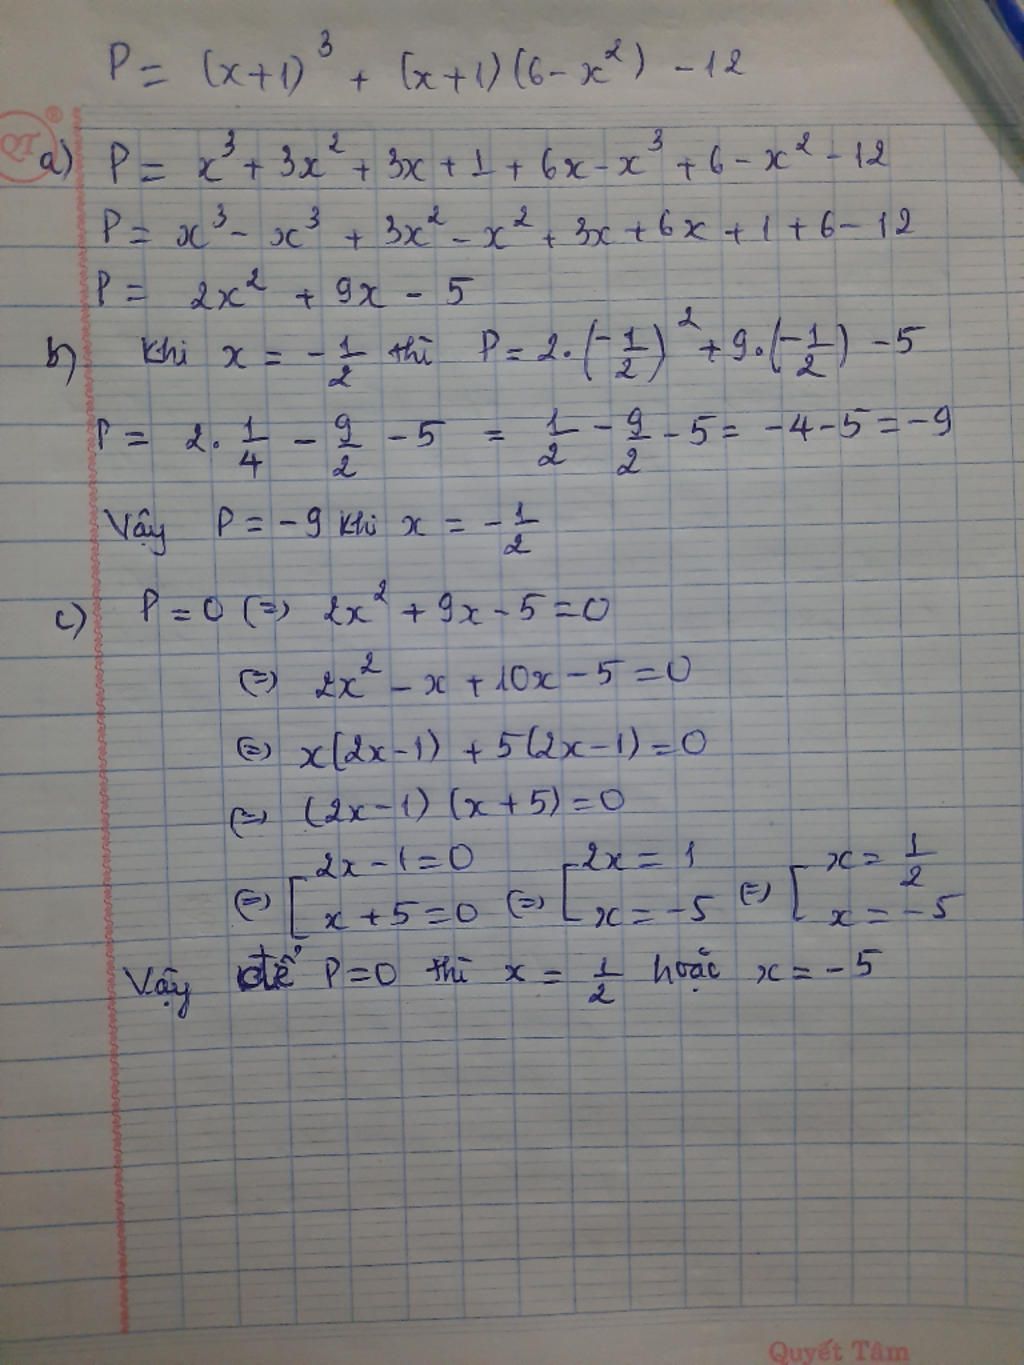 P = (x+1)³ + (x+1)(6-x²) - 12
QT ®
a) P = x³ + 3x² + 3x + 1 + 6x - x³ + 6 - x² - 12
P = x³ - x³ + 3x² - x² + 3x + 6x + 1 + 6 - 12
P = 2x² + 9x - 5
b) Khi x = -1/2 thì P = 2.(-1/2)² + 9.(-1/2) - 5
P = 2.1/4 - 9/2 - 5 = 1/2 - 9/2 - 5 = -4 - 5 = -9
Vậy P = -9 khi x = -1/2
c) P = 0 (=) 2x² + 9x - 5 = 0
(=) 2x² - x + 10x - 5 = 0
(=) x(2x-1) + 5(2x-1) = 0
(=) (2x-1)(x+5) = 0
(=) [ 2x - 1 = 0 (=) [ 2x = 1 (=) [ x = 1/2
x + 5 = 0 x = -5 x = -5
Vậy để P = 0 thì x = 1/2 hoặc x = -5
Quyết Tâm